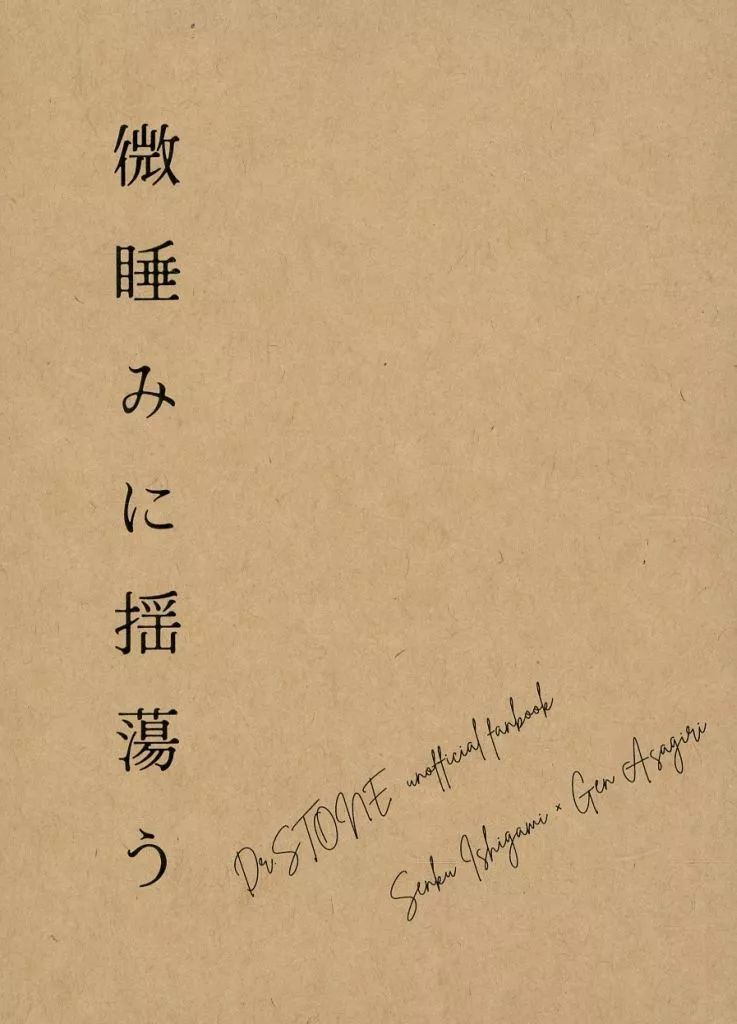 微睡みに揺蕩う
Dr.STONE unofficial fanbook
Senku Ishigami × Gen Asagiri